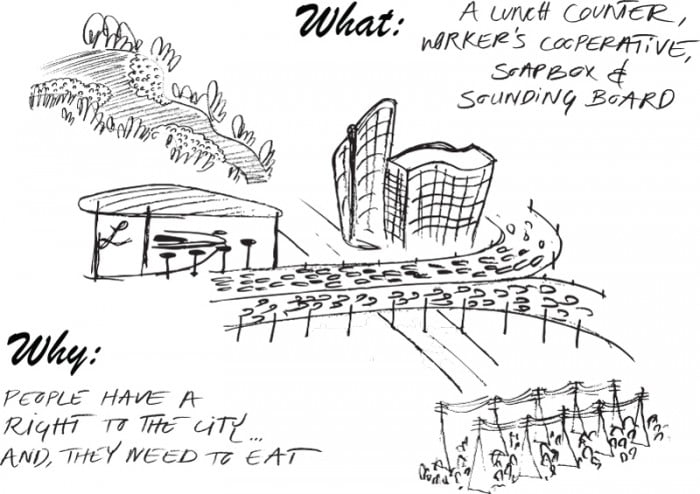 What:
A LUNCH COUNTER,
WORKER'S COOPERATIVE,
SOAPBOX &
SOUNDING BOARD
L
Why:
PEOPLE HAVE A
RIGHT TO THE CITY...
AND, THEY NEED TO EAT